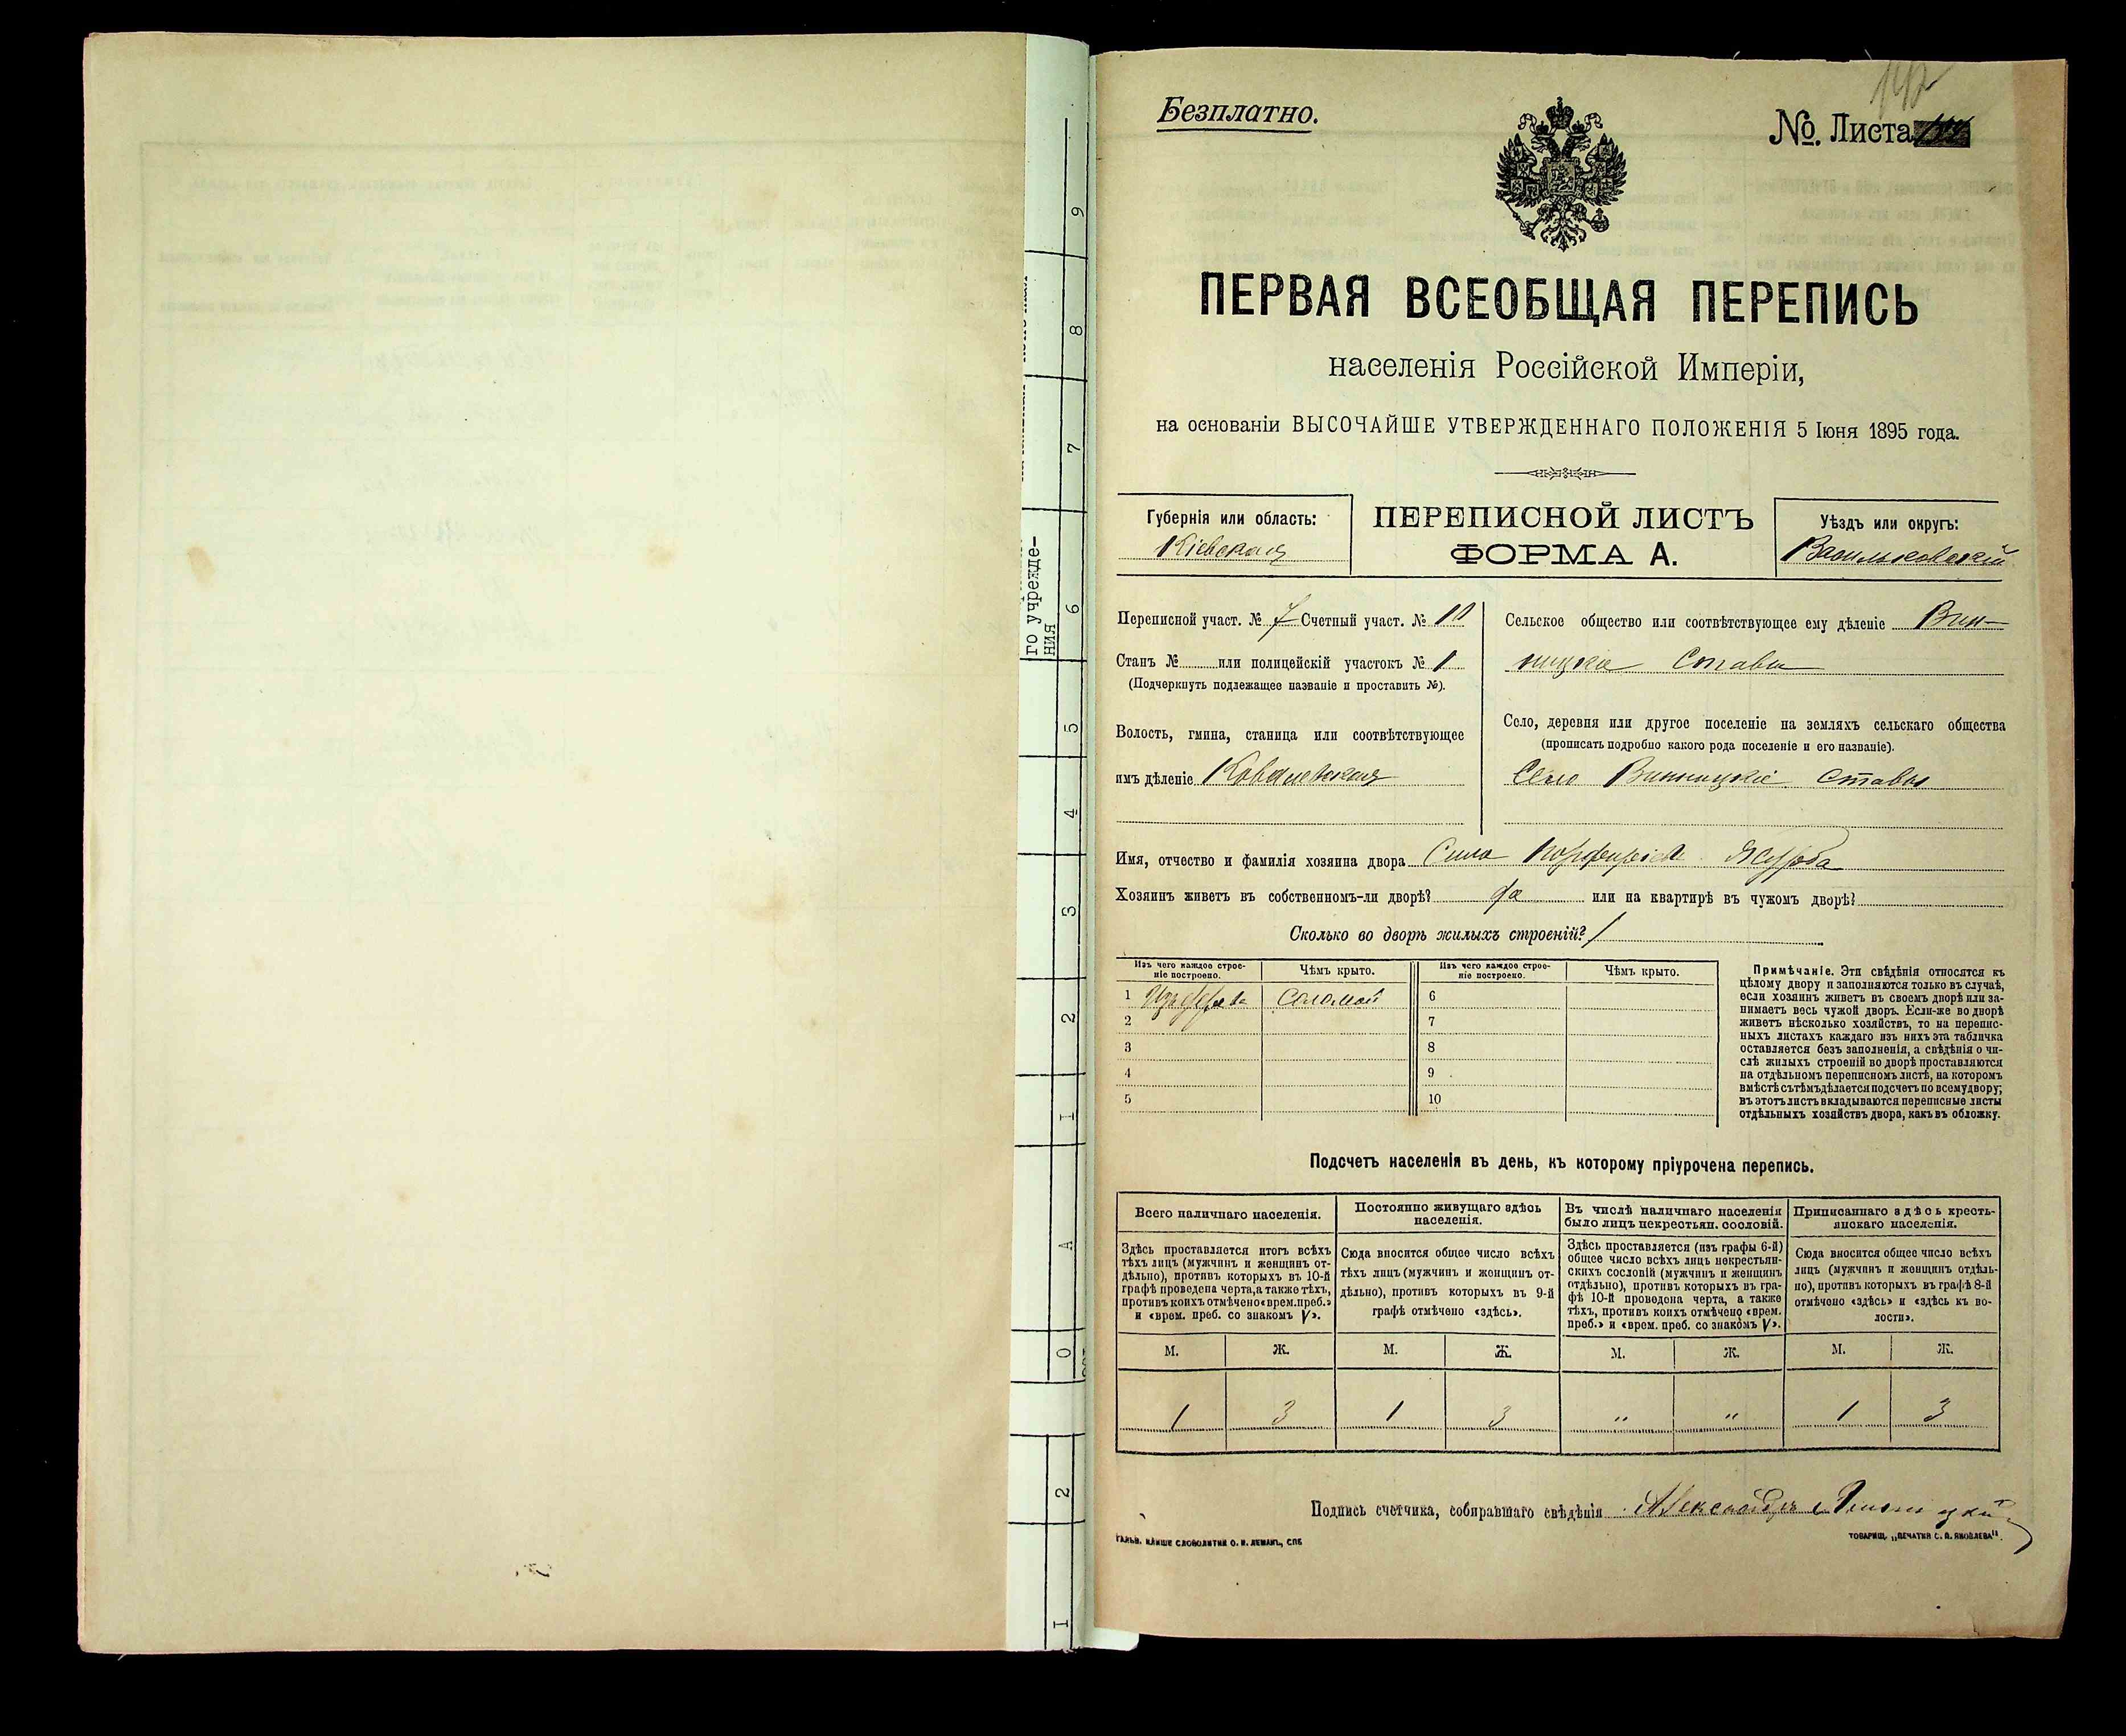 142
Безплатно.
№. Листа
ПЕРВАЯ ВСЕОБЩАЯ ПЕРЕПИСЬ
населенія Россійской Имперіи,
на основаніи ВЫСОЧАЙШЕ УТВЕРЖДЕННАГО ПОЛОЖЕНІЯ 5 Іюня 1895 года.
Губернія или область:
Кіевская
ПЕРЕПИСНОЙ ЛИСТЪ
ФОРМА А.
Уѣздъ или округъ:
Васильковскій
Переписной участ. № 7 Счетный участ. № 11
Станъ № или полицейскій участокъ № 1
(Подчеркнуть подлежащее названіе и проставить №).
Волость, гмина, станица или соотвѣтствующее
имъ дѣленіе Ковалевская
Сельское общество или соотвѣтствующее ему дѣленіе Вин-
ницкіе Ставы
Село, деревня или другое поселеніе на земляхъ сельскаго общества
(прописать подробно какого рода поселеніе и его названіе).
Село Винницкіе Ставы
Имя, отчество и фамилія хозяина двора Сила
Хозяинъ живетъ въ собственномъ-ли дворѣ? да или на квартирѣ въ чужомъ дворѣ?
Сколько во дворѣ жилыхъ строеній? 1
Изъ чего каждое строе-
ніе построено.
Чѣмъ крыто.
Изъ чего каждое строе-
ніе построено.
Чѣмъ крыто.
1 Изъ дерева Соломой 6
2 7
3 8
4 9
5 10
Примѣчаніе. Эти свѣдѣнія относятся къ
цѣлому двору и заполняются только въ случаѣ,
если хозяинъ живетъ въ своемъ дворѣ или за-
нимаетъ весь чужой дворъ. Если-же во дворѣ
живетъ нѣсколько хозяйствъ, то на перепис-
ныхъ листахъ каждаго изъ нихъ эта табличка
оставляется безъ заполненія, а свѣдѣнія о чи-
слѣ жилыхъ строеній во дворѣ проставляются
на отдѣльномъ переписномъ листѣ, на которомъ
вмѣстѣ съ тѣмъ дѣлается подсчетъ по всему двору;
въ этотъ листъ вкладываются переписные листы
отдѣльныхъ хозяйствъ двора, какъ въ обложку.
Подсчетъ населенія въ день, къ которому пріурочена перепись.
Всего наличнаго населенія.
Здѣсь проставляется итогъ всѣхъ
тѣхъ лицъ (мужчинъ и женщинъ от-
дѣльно), противъ которыхъ въ 10-й
графѣ проведена черта, а также тѣхъ,
противъ коихъ отмѣчено «врем. преб.»
и «врем. преб. со знакомъ V».
Постоянно живущаго здѣсь
населенія.
Сюда вносится общее число всѣхъ
тѣхъ лицъ (мужчинъ и женщинъ от-
дѣльно), противъ которыхъ въ 9-й
графѣ отмѣчено «здѣсь».
Въ числѣ наличнаго населенія
было лицъ некрестьян. сословій.
Здѣсь проставляется (изъ графы 6-й)
общее число всѣхъ лицъ некрестьян-
скихъ сословій (мужчинъ и женщинъ
отдѣльно), противъ которыхъ въ гра-
фѣ 10-й проведена черта, а также
тѣхъ, противъ коихъ отмѣчено «врем.
преб.» и «врем. преб. со знакомъ V».
Приписаннаго здѣсь кресть-
янскаго населенія.
Сюда вносится общее число всѣхъ
лицъ (мужчинъ и женщинъ отдѣль-
но), противъ которыхъ въ графѣ 8-й
отмѣчено «здѣсь» и «здѣсь къ во-
лости».
М. Ж. М. Ж. М. Ж. М. Ж.
1 3 1 3 " " 1 3
Подпись счетчика, собиравшаго свѣдѣнія Александръ
ГАЛЬВ. КЛИШЕ СЛОВОЛИТНИ О. И. ЛЕМАНЪ, СПБ
ТОВАРИЩ. „ПЕЧАТНЯ С. П. ЯКОВЛЕВА".
го учрежде-
ния
9
8
7
6
5
4
3
2
1
А
0
2
1